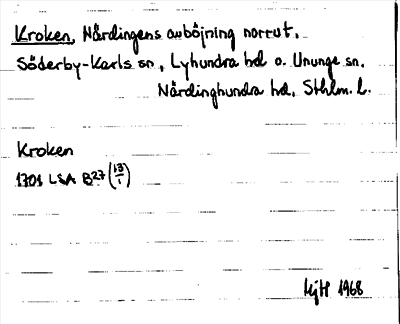 Kroken, Närdingens avböjning norrut.
Söderby-Karls sn, Lyhundra hd o. Ununge sn.
Närdinghundra hd, Sthlm. l.
Kroken
1701 LSA B27 (13/1)
1968